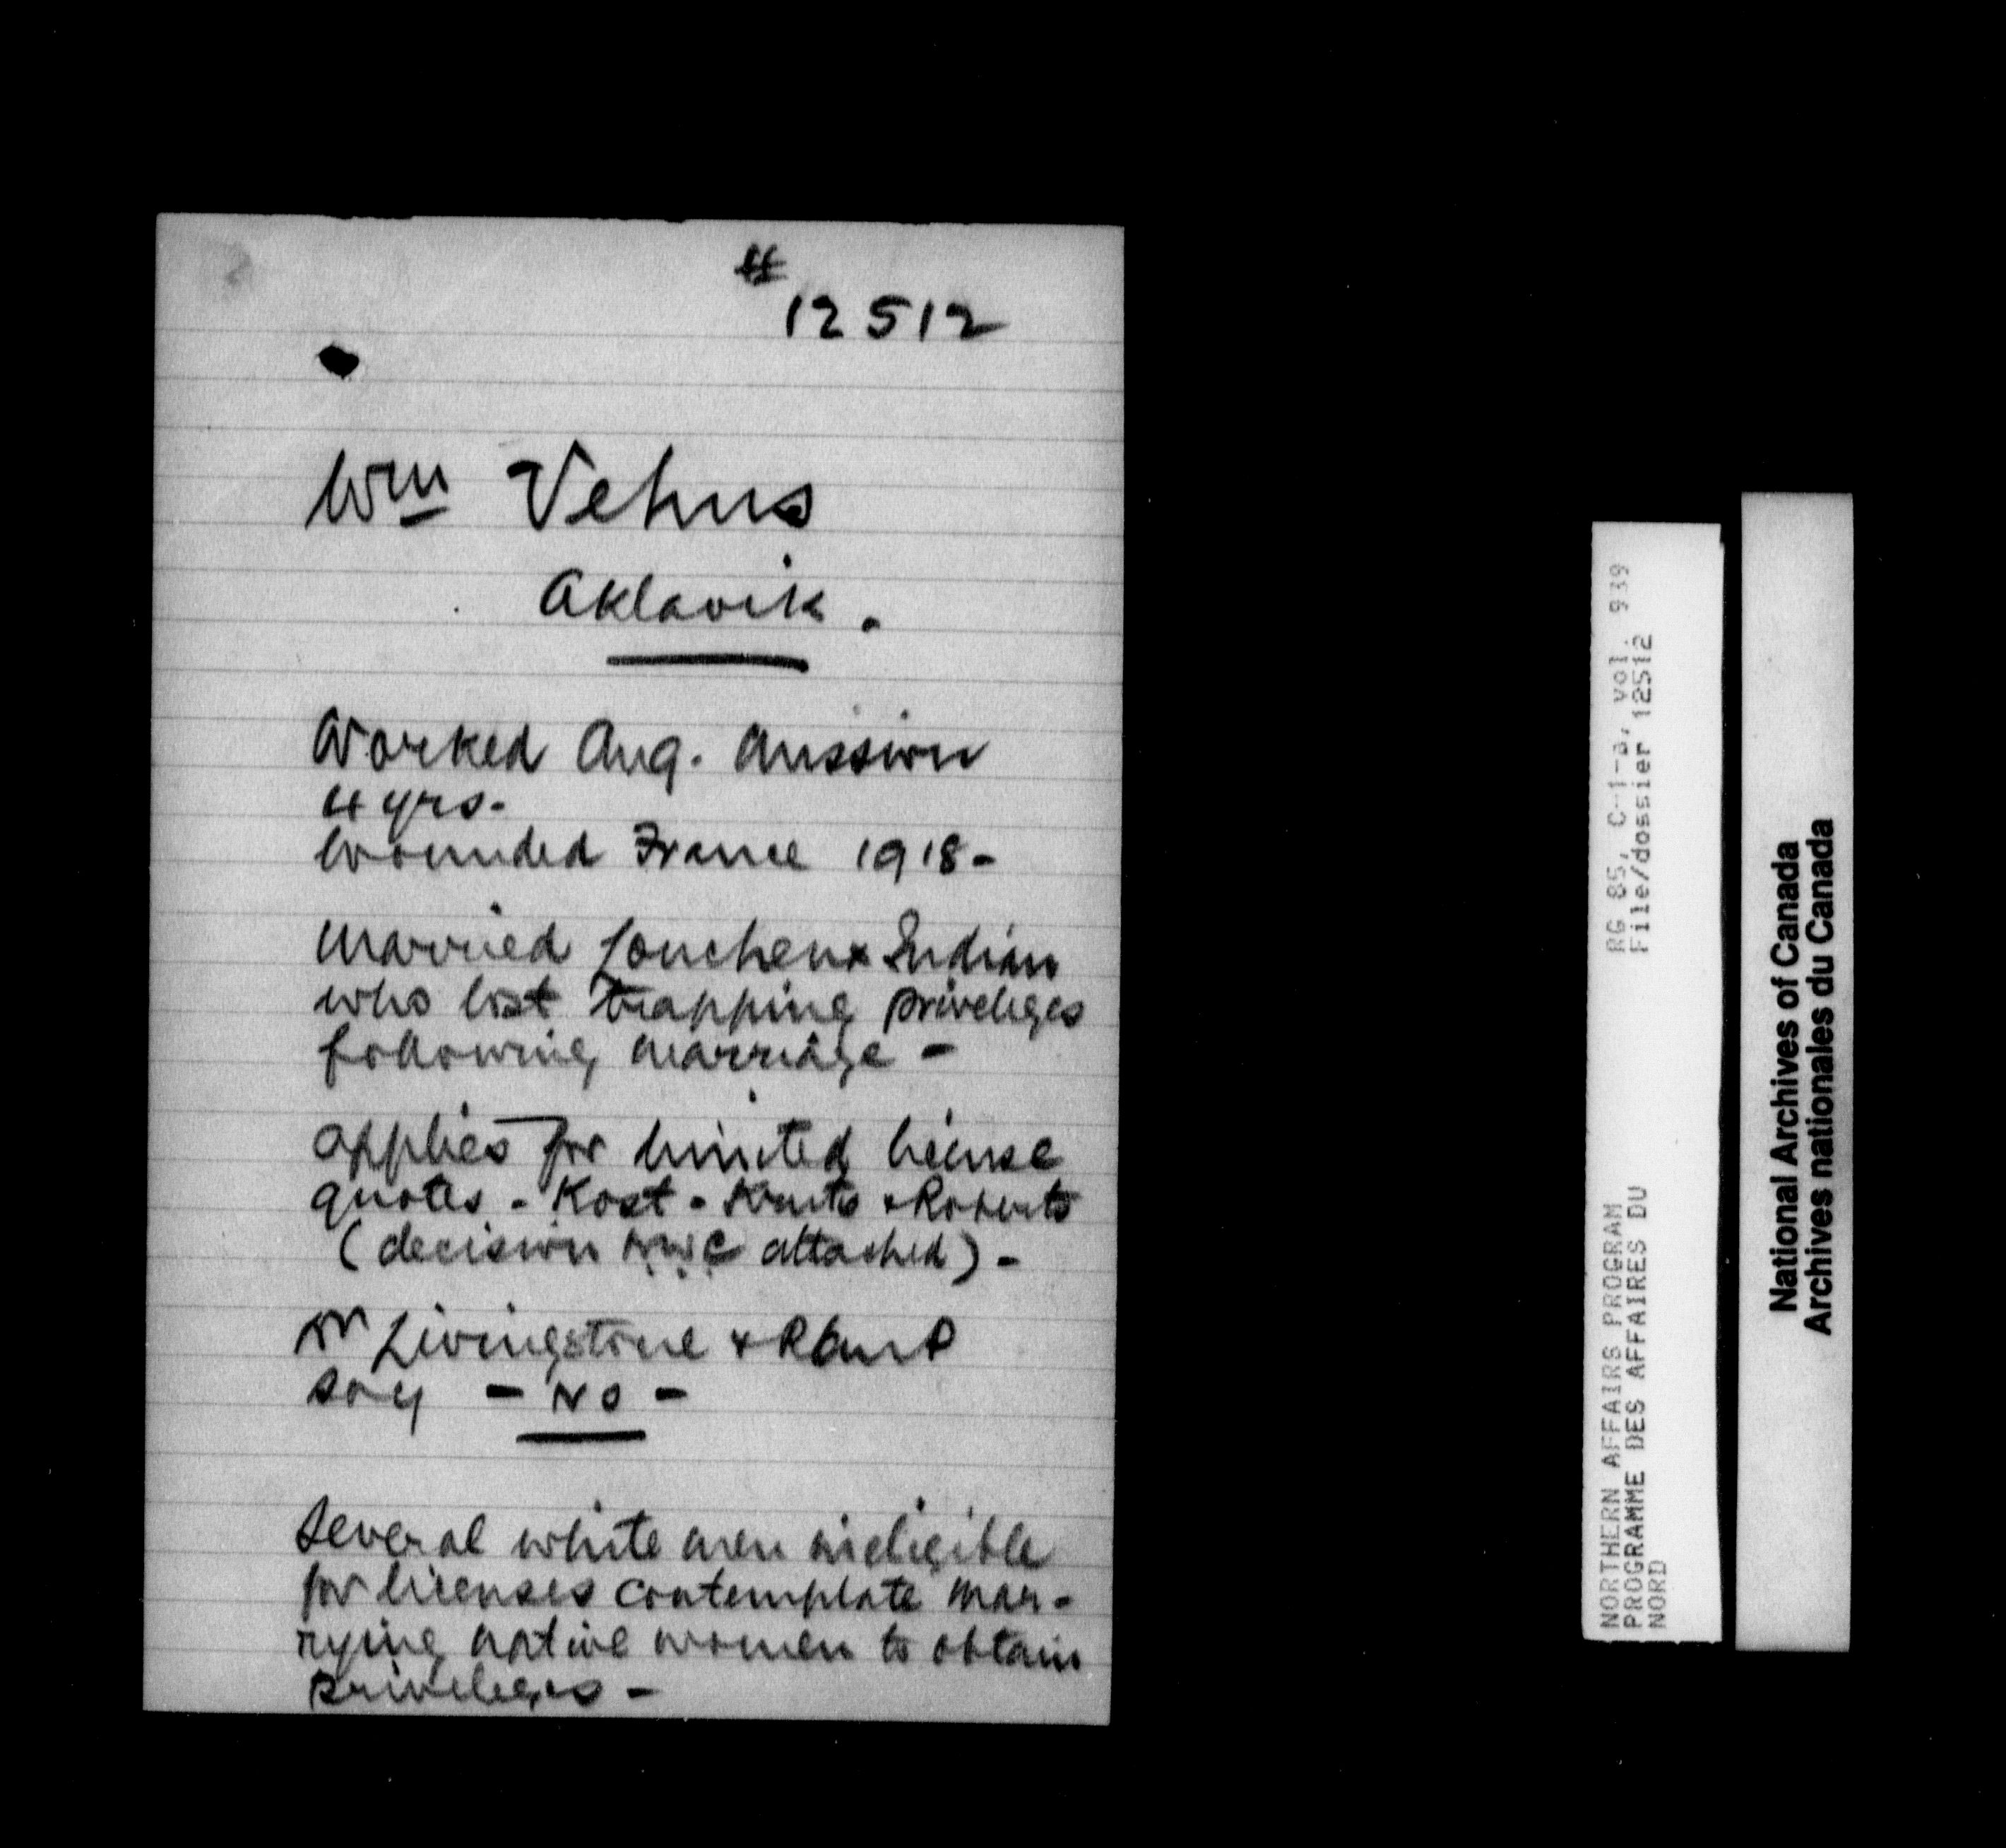 #
12512
Wm Vehus
Aklavik.
Worked Ang. Mission
4 yrs.
Wounded France 1918 -
Married Loucheux Indian
who lost trapping priveleges
following marriage -
applies for limited license
quotes - Kost - & Roberts
(decision attached) -
Dr Livingstone & RCMP
say - No -
Several white men ineligible
for licenses contemplate mar-
rying native women to obtain
priveleges -
RG 85, C-1-a, vol. 939
File/dossier 12512
NORTHERN AFFAIRS PROGRAM
PROGRAMME DES AFFAIRES DU
NORD
National Archives of Canada
Archives nationales du Canada